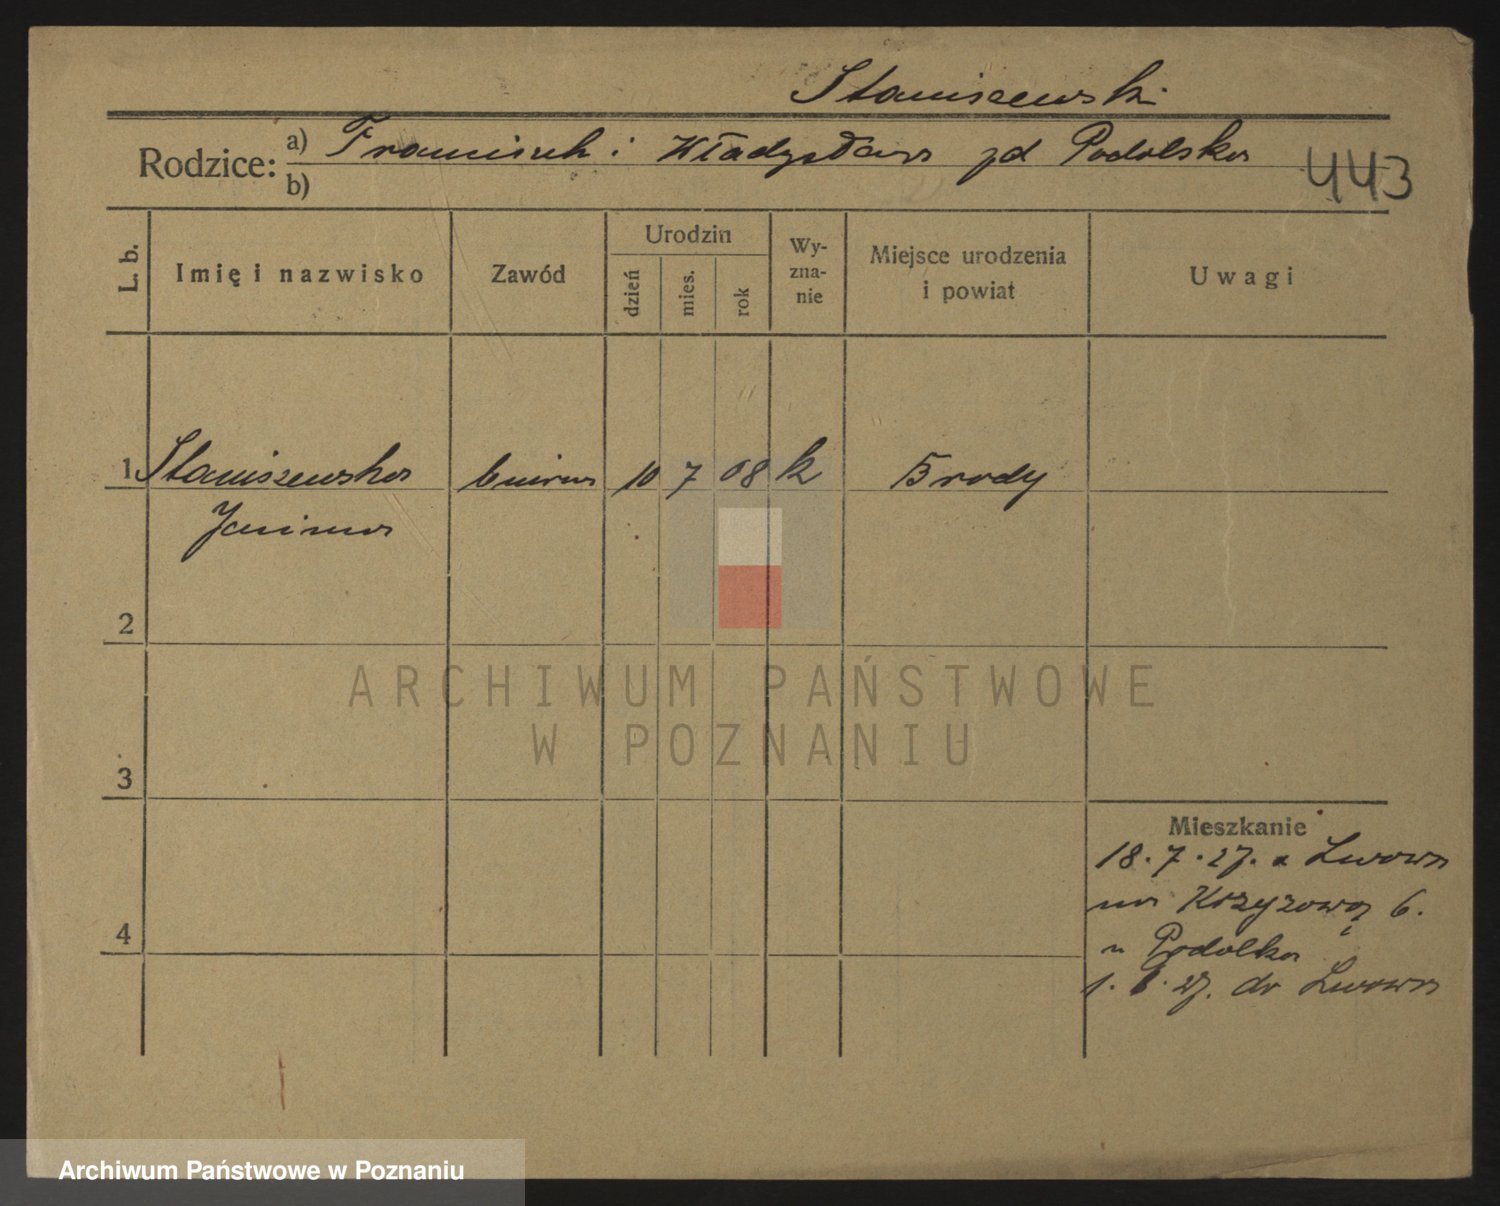 Staniszewski
Rodzice: a) Franciszek i Władysława zd Podolska
b)
443
L. b.
Imię i nazwisko
Zawód
Urodzin
dzień
mies.
rok
Wy-
zna-
nie
Miejsce urodzenia
i powiat
Uwagi
1 Staniszewska 10 7 08 k Brody
Janina
2
3
4
Mieszkanie
18.7.27. z Lwowa
na Krzyzową 6.
u Podolska
1.8.27. do Lwowa
ARCHIWUM PAŃSTWOWE
W POZNANIU
Archiwum Państwowe w Poznaniu